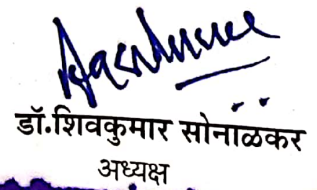 डॉ.शिवकुमार सोनाळकर
अध्यक्ष